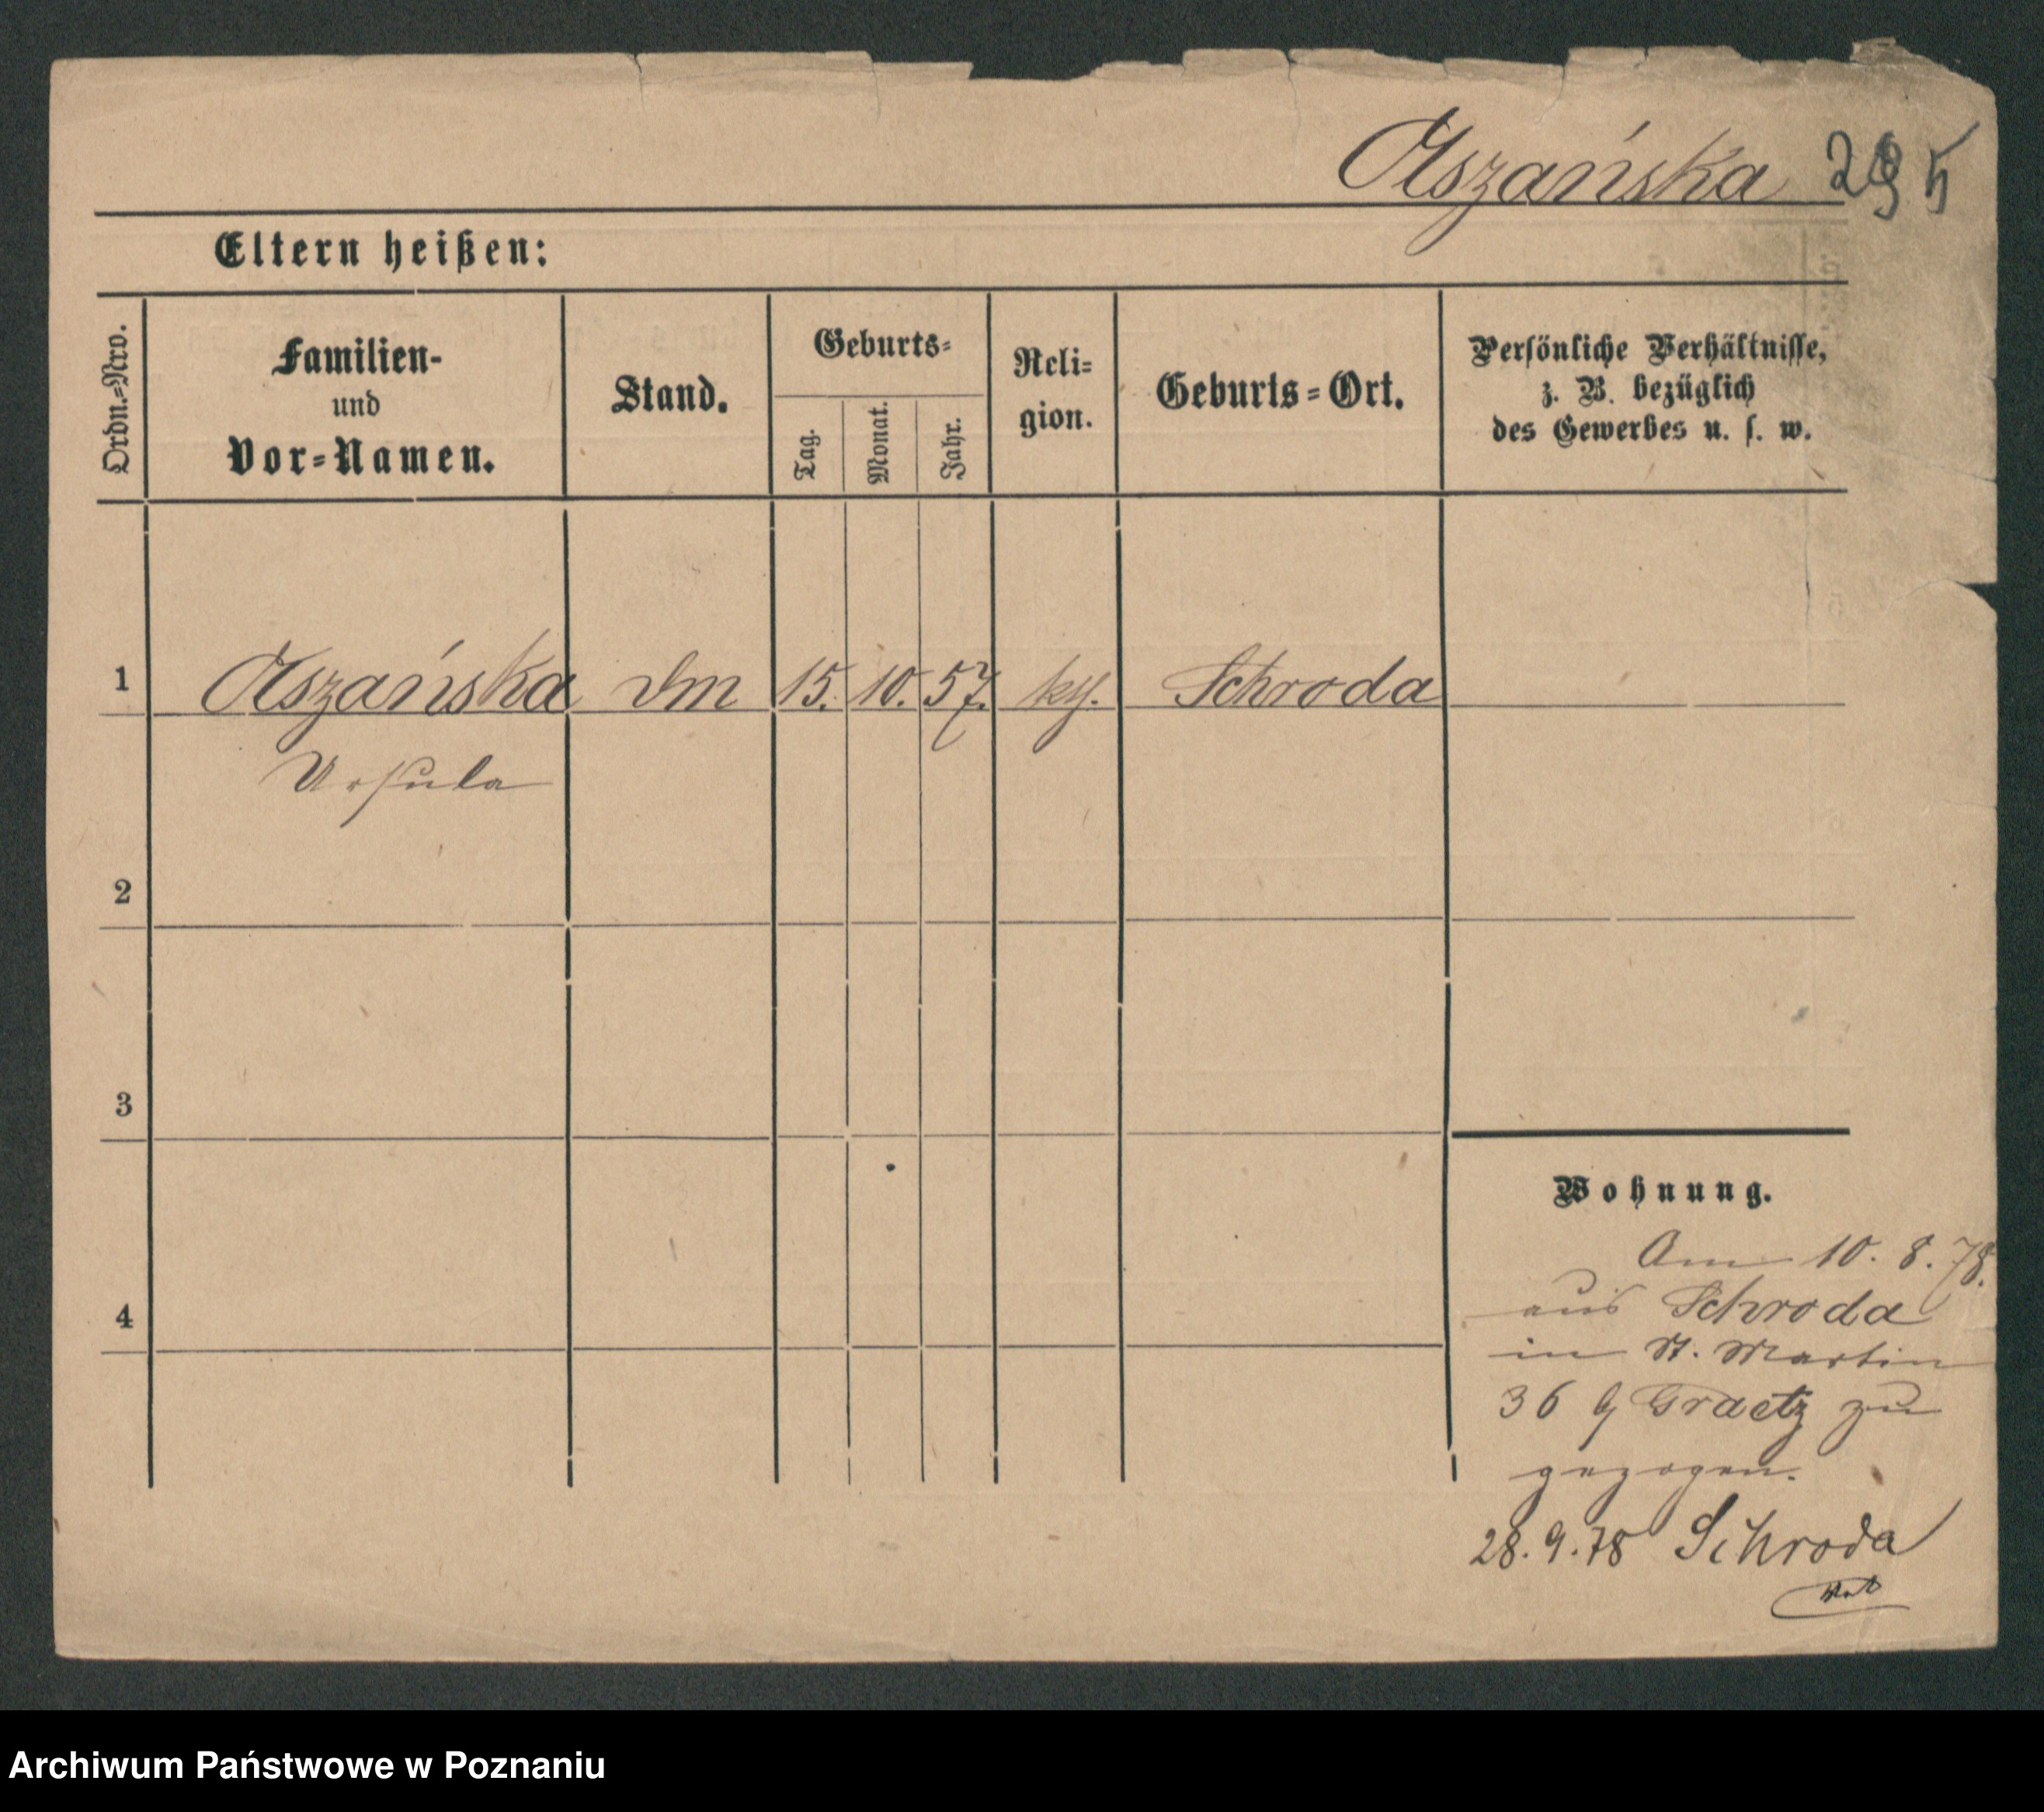 Olszańska 295
Eltern heißen:
Ordn.=Nro.
Familien-
und
Vor=Namen.
Stand.
Geburts=
Tag.
Monat.
Jahr.
Reli=
gion.
Geburts=Ort.
Persönliche Verhältnisse,
z. B. bezüglich
des Gewerbes u. s. w.
1 Olszańska Dm 15. 10. 57. kth. Schroda
Ursula
2
3
4
Wohnung.
Am 10. 8. 78.
aus Schroda
in St. Martin
36 b Graetz zu
gezogen.
28.9.78 Schroda
Archiwum Państwowe w Poznaniu